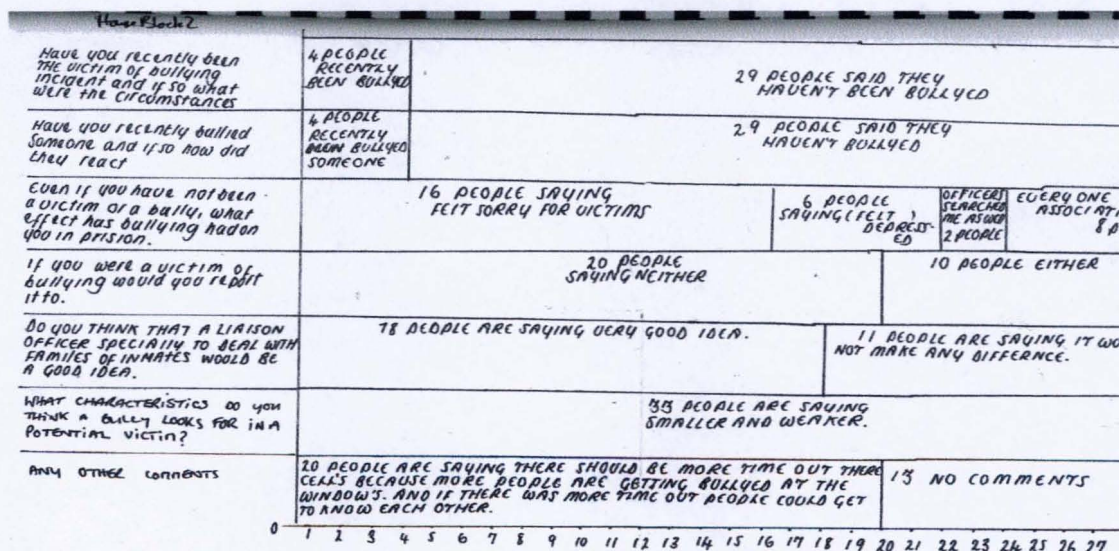 House Block 2
Have you recently been
the victim of bullying
incident and if so what
were the circumstances
4 PEOPLE
RECENTLY
BEEN BULLYED
29 PEOPLE SAID THEY
HAVEN'T BEEN BULLYED
Have you recently bullied
Someone and if so how did
they react
4 PEOPLE
RECENTLY
BULLYED
SOMEONE
29 PEOPLE SAID THEY
HAVEN'T BULLYED
Even if you have not been
a victim or a bully, what
effect has bullying had on
you in prision.
16 PEOPLE SAYING
FELT SORRY FOR VICTIMS
6 PEOPLE
SAYING I FELT
DEPRESS-
ED
OFFICERS
SEARCHED
ME AS WELL
2 PEOPLE
EVERYONE
ASSOCIAT
8 P
If you were a victim of
bullying would you report
it to.
20 PEOPLE
SAYING NEITHER
10 PEOPLE EITHER
DO YOU THINK THAT A LIAISON
OFFICER SPECIALLY TO DEAL WITH
FAMILES OF INMATES WOULD BE
A GOOD IDEA.
18 PEOPLE ARE SAYING VERY GOOD IDEA.
11 PEOPLE ARE SAYING IT WO
NOT MAKE ANY DIFFERNCE.
WHAT CHARACTERISTICS DO YOU
THINK A BULLY LOOKS FOR IN A
POTENTIAL VICTIM?
33 PEOPLE ARE SAYING
SMALLER AND WEAKER.
ANY OTHER COMMENTS
20 PEOPLE ARE SAYING THERE SHOULD BE MORE TIME OUT THERE
CELL'S BECAUSE MORE PEOPLE ARE GETTING BULLYED AT THE
WINDOW'S. AND IF THERE WAS MORE TIME OUT PEOPLE COULD GET
TO KNOW EACH OTHER.
13 NO COMMENTS
0 1 2 3 4 5 6 7 8 9 10 11 12 13 14 15 16 17 18 19 20 21 22 23 24 25 26 27